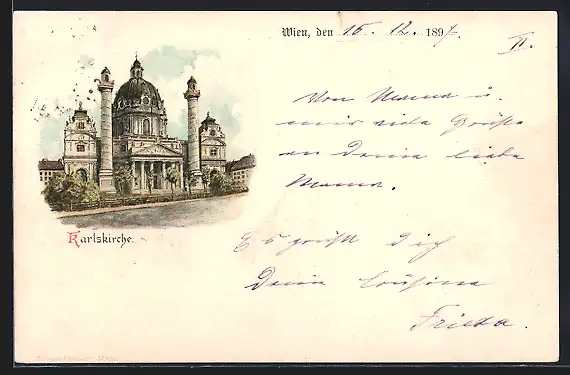 Wien, den 15. 12. 1897.
II.
Von Mama u.
mir viele Grüße
an Deine liebe
Mama.
Karlskirche.
Es grüßt Dich
Deine Cousine
Frieda.